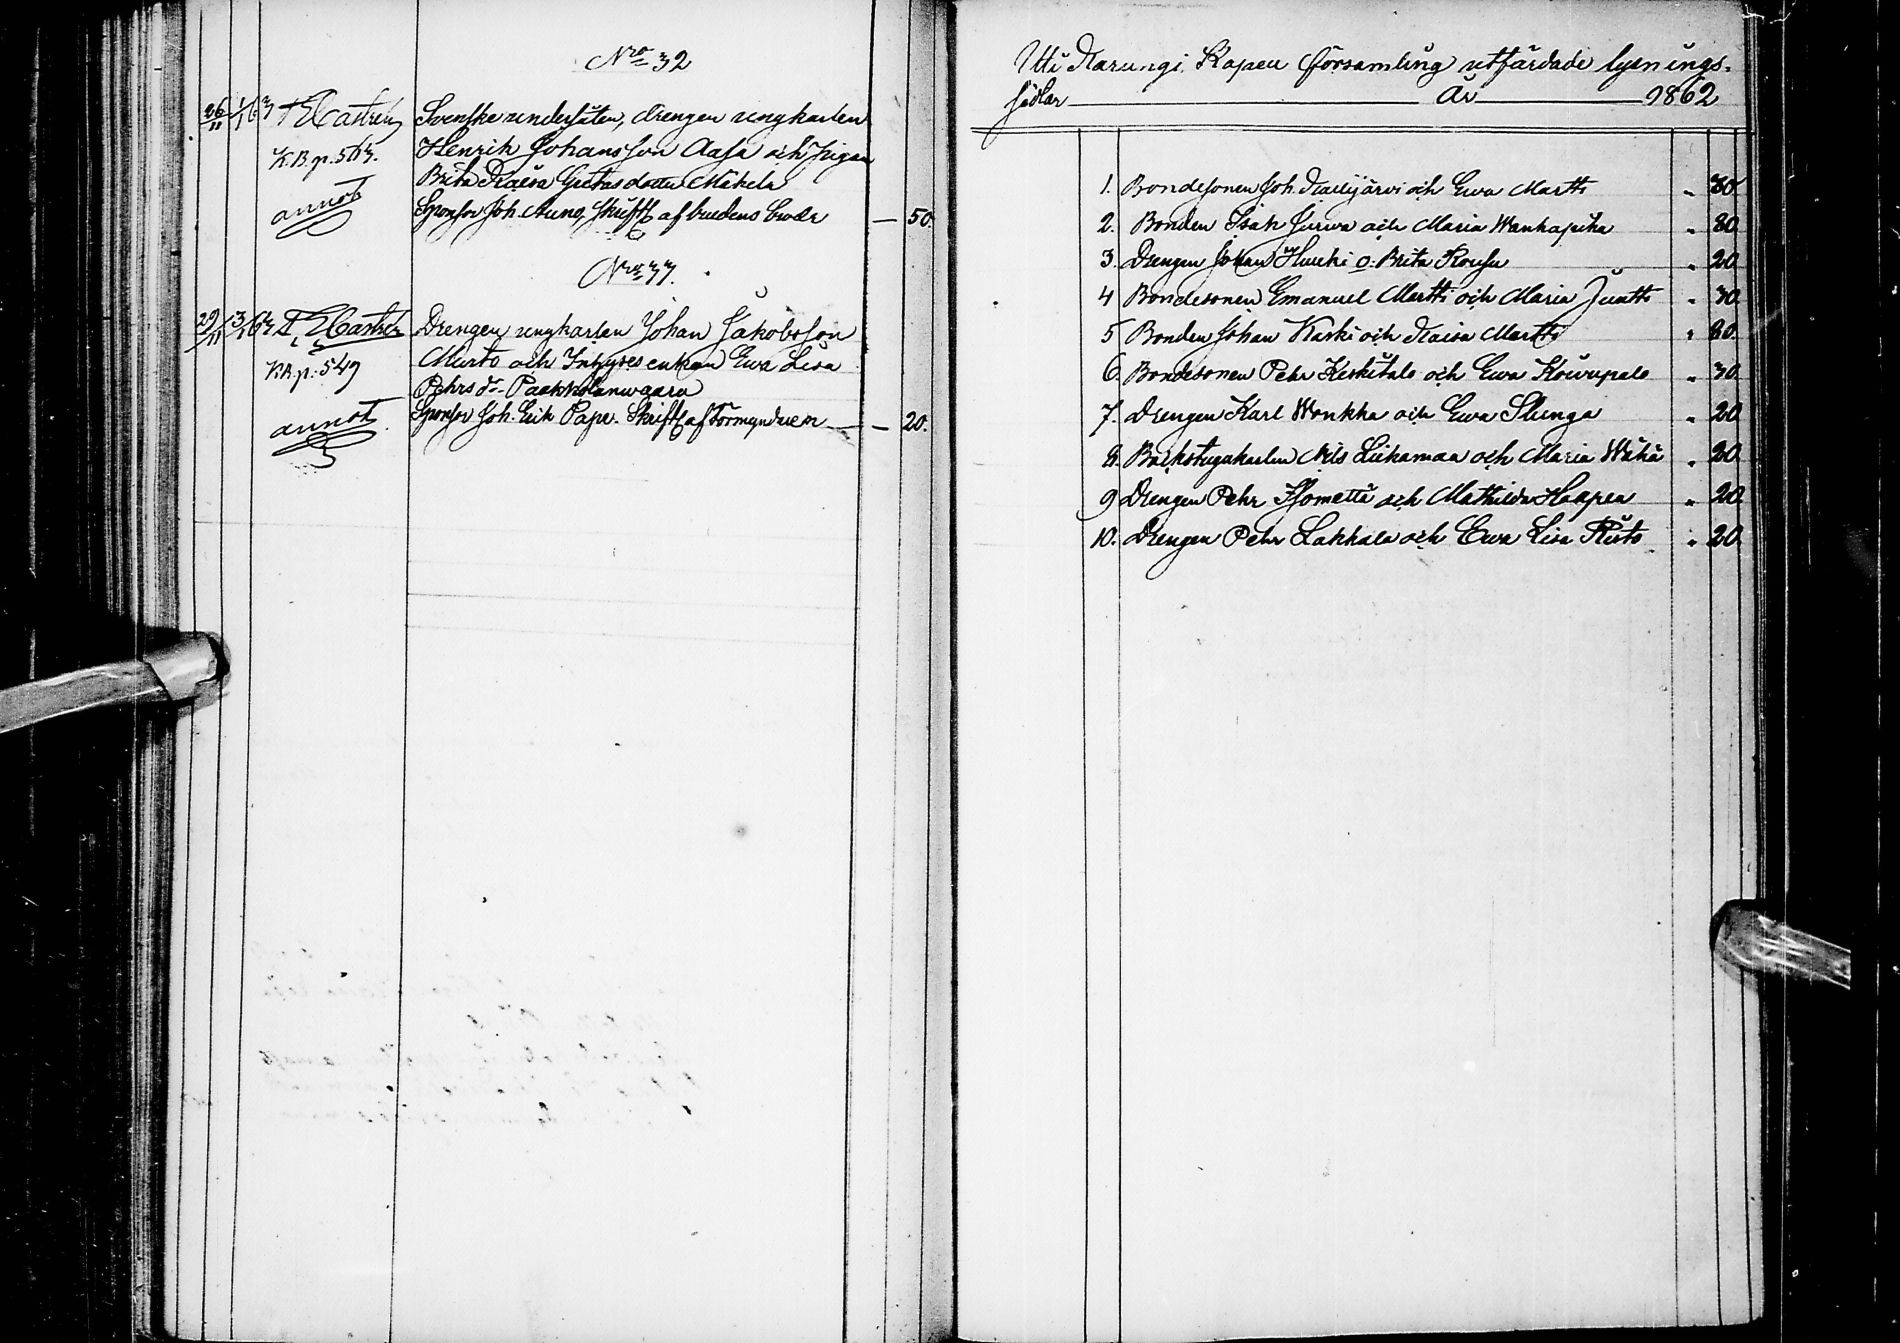 Nro 32
26/11 1/1 63 Castrén Svenske undersåten, Drengen ungkarlen
K.B. p. 563. Henrik Johansson Aasa och Pigan
Brita Kaisa Gretas dotter Mäkelä
annot Sponsor Joh. Aung. Skriftl af brudens broder — 50.
Nro 33.
29/11 13/1 63 Castrén Drengen ungkarlen Johan Jakobsson
K.B. p. 549 Murto och Inhyses enkan Ewa Lisa
Pehrs dr. Paakkolanwaara
annot Sponsor Joh. Erik Pape. Skriftl af Förmyndaren — 20.
Uti Karungi Kapell församling utfärdade lysnings-
sedlar År 1862
1. Bondesonen Joh. Kaulijärvi och Ewa Martti " 30
2. Bonden Isak Jurva och Maria Wanhapiha " 80
3. Drengen Johan Hurki o. Brita Kousu " 20
4 Bondesonen Emanuel Martti och Maria Juntti " 30
5 Bonden Johan Karki och Kaisa Martti " 80
6. Bondesonen Pehr Keskitalo och Ewa Koivupalo " 30
7. Drengen Karl Wonkka och Ewa Slunga " 20
8. Backstugukarlen Nils Liekamaa och Maria Wähä " 20
9 Drengen Pehr och Mathilda Haapea " 20
10. Drengen Pehr Lakkala och Ewa Lisa Risto " 20